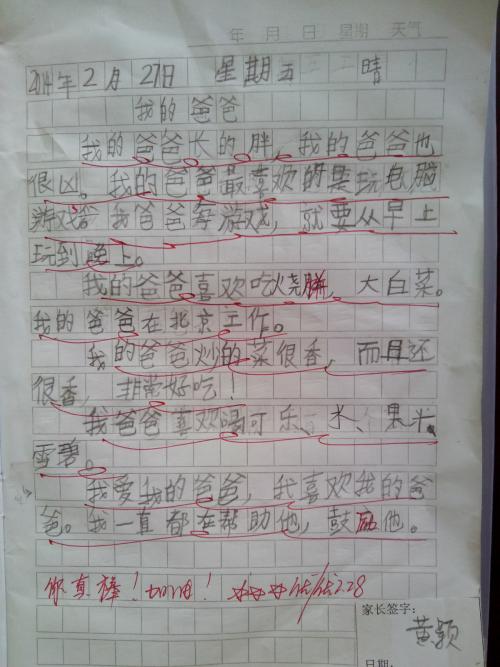 年 月 日 星期 天气
2014年2月27日 星期五 晴
我的爸爸
我的爸爸长的胖，我的爸爸也
很凶。我的爸爸最喜欢的是玩电脑
游戏 我爸爸 游戏，就要从早上
玩到晚上。
我的爸爸喜欢吃烧饼，大白菜。
我的爸爸在北京工作。
我的爸爸炒的菜很香，而且还
很香，非常好吃！
我爸爸喜欢喝可乐、水、果汁、
雪碧。
我爱我的爸爸，我喜欢我的爸
爸。我一直都在帮助他，鼓励他。
你真棒！加油！ 2.28
家长签字：
黄颖
日期：